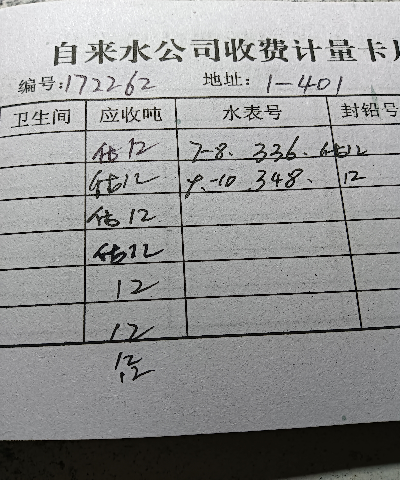 自来水公司收费计量卡片
编号:172262 地址: 1-401
卫生间 应收吨 水表号 封铅号
估12 7-8. 336. 估12
估12 9.-10 348. 12
估12
估12
12
12
12
12